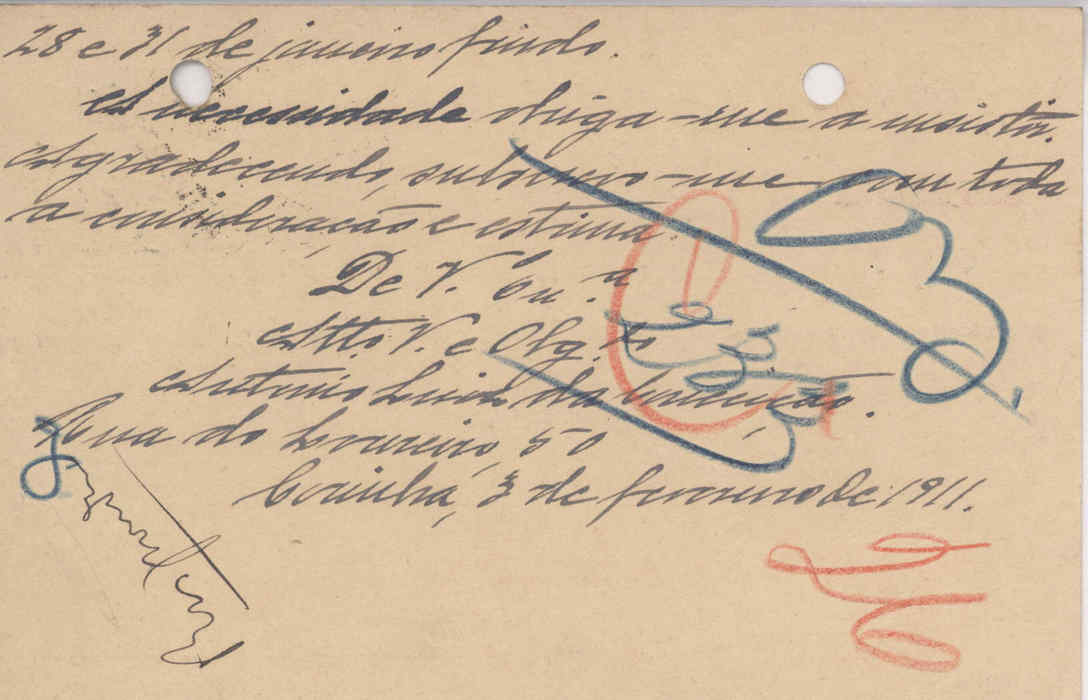 28 e 31 de janeiro findo.
A necessidade obriga-me a insistir.
Agradecendo, subscrevo-me com toda
a consideração e estima
De V. Ex.ª
Att.º V. e Obg.do
Antonio Luiz da Conceição.
Rua do Loureiro, 50
Coimbra, 3 de fevereiro de 1911.